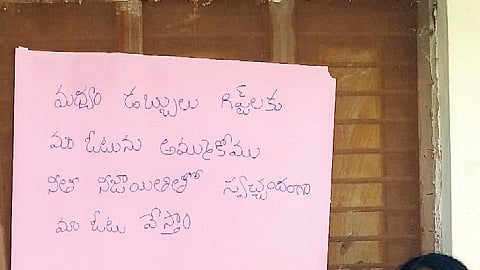 మద్యం డబ్బులు గిఫ్ట్‌లకు
మా ఓటును అమ్ముకోము
నీతి నిజాయితితో స్వచ్ఛందంగా
మా ఓటు వేస్తాం